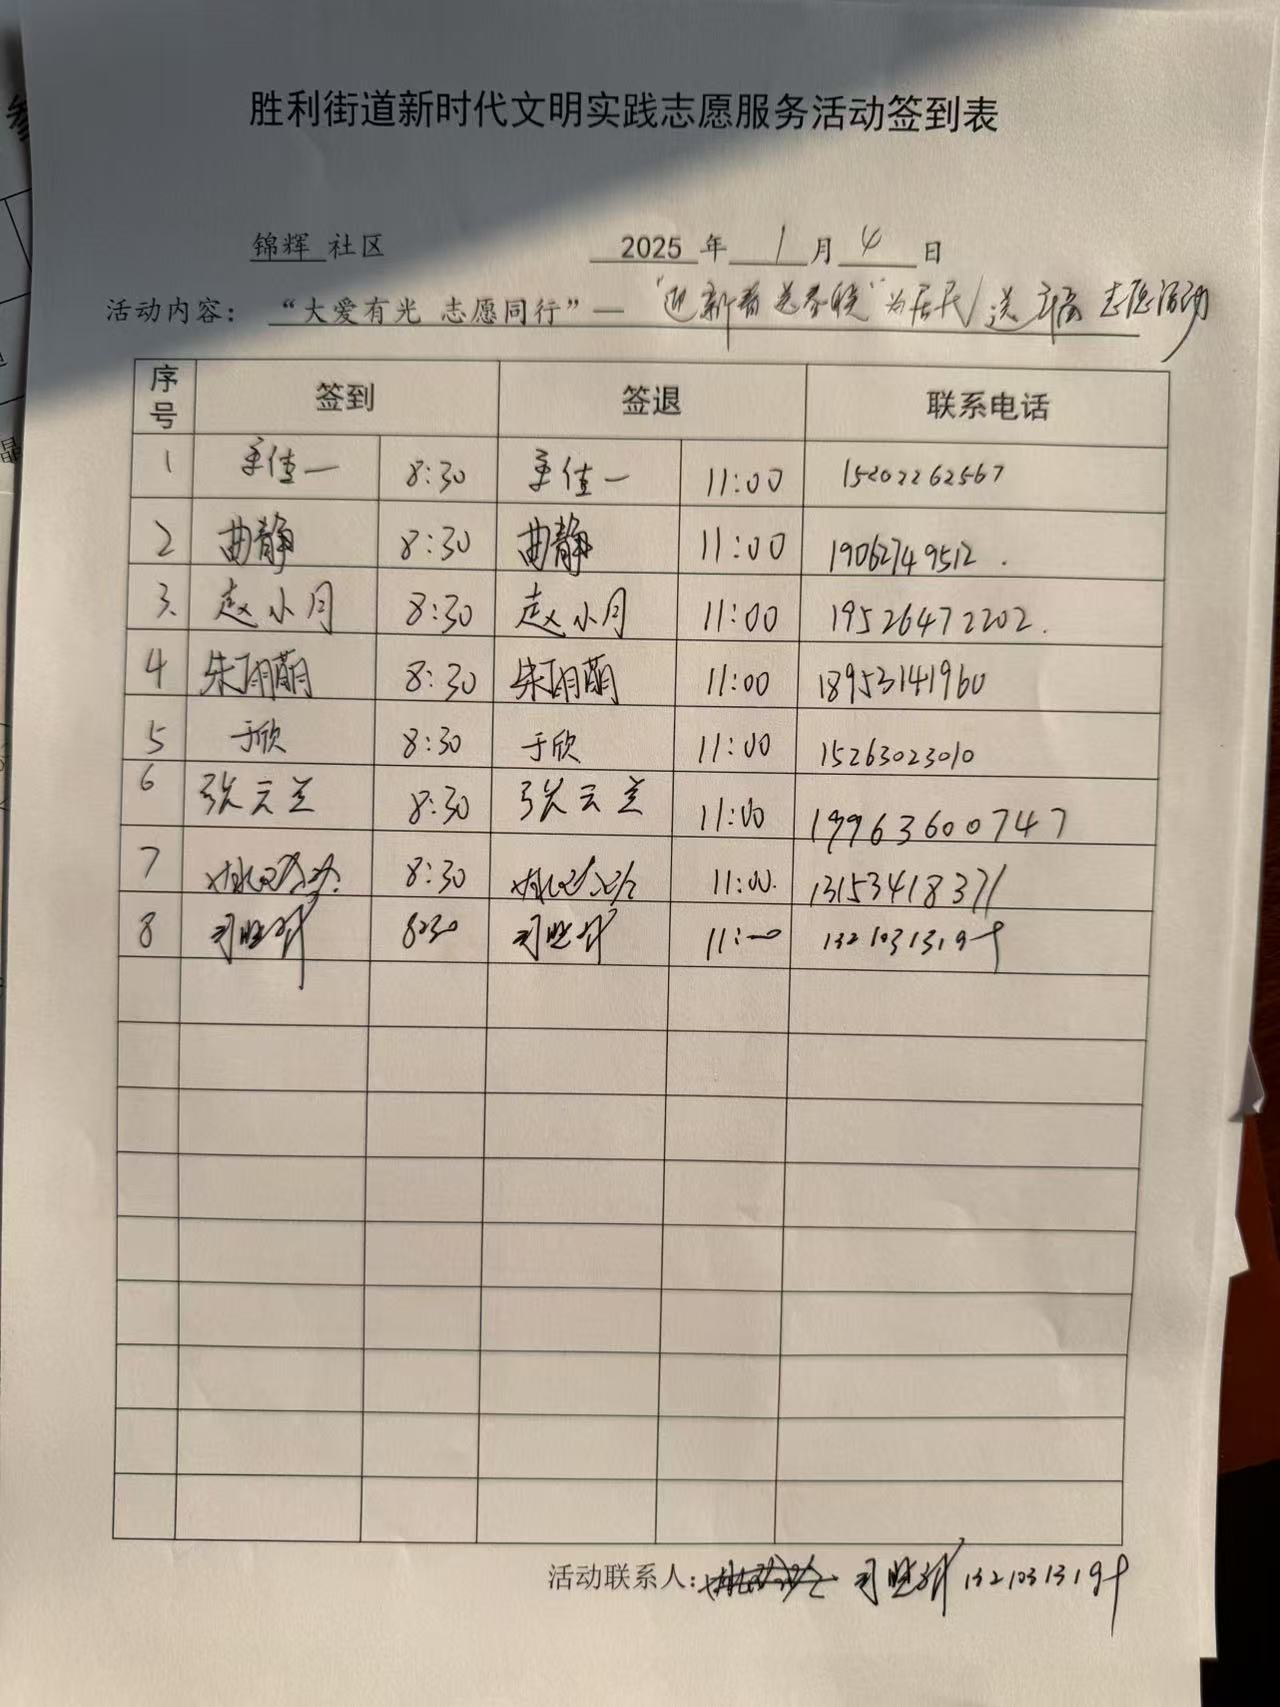 胜利街道新时代文明实践志愿服务活动签到表
锦辉 社区 2025 年 1 月 4 日
活动内容：“大爱有光 志愿同行”— “迎新春送春联”为居民送福志愿活动
序号 签到 签退 联系电话
1 佳一 8:30 佳一 11:00 15202262567
2 曲静 8:30 曲静 11:00 19062749512.
3. 赵小月 8:30 赵小月 11:00 19526472202.
4 朱雨萌 8:30 朱雨萌 11:00 18953141960
5 于欣 8:30 于欣 11:00 15263023010
6 张云兰 8:30 张云兰 11:00 19963600747
7 8:30 11:00. 13153418371
8 8:30 11:00
活动联系人：